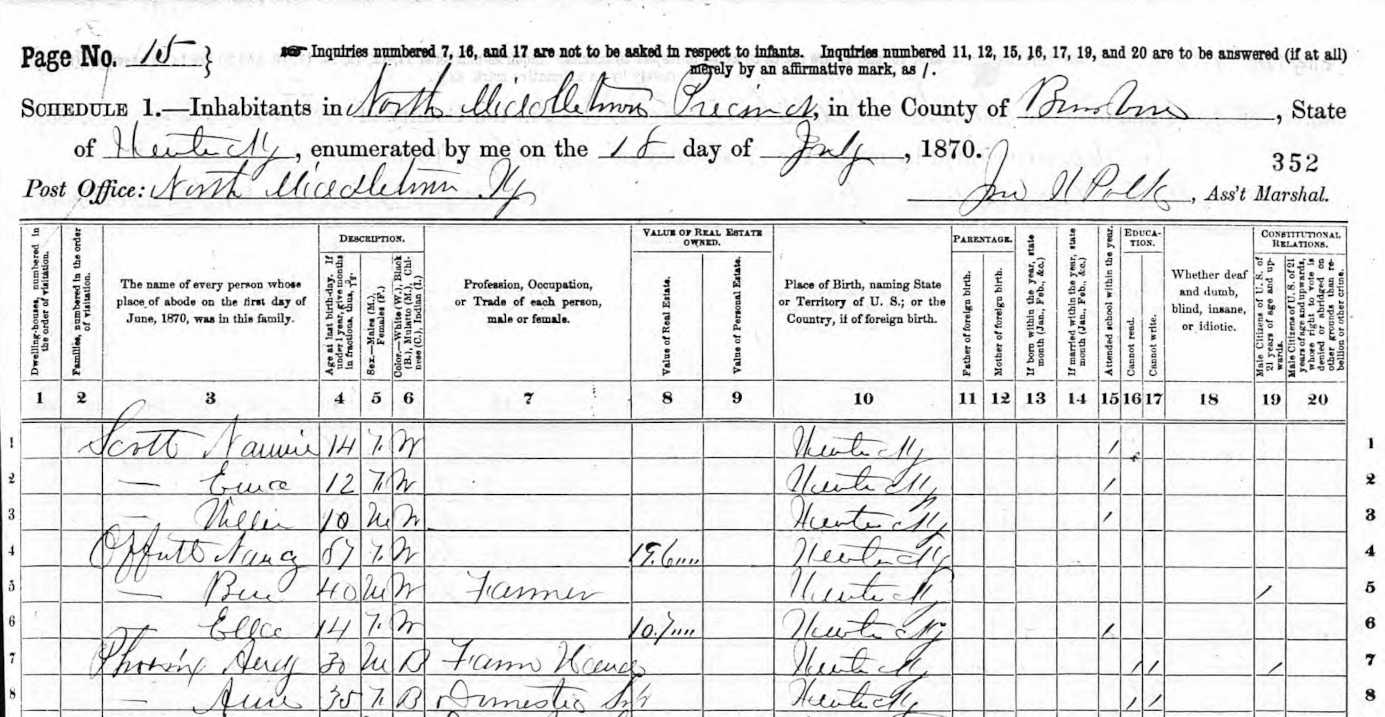 Page No. 15 } Inquiries numbered 7, 16, and 17 are not to be asked in respect to infants. Inquiries numbered 11, 12, 15, 16, 17, 19, and 20 are to be answered (if at all)
merely by an affirmative mark, as /.
SCHEDULE 1.—Inhabitants in North Middletown Precinct, in the County of Bourbon, State
of Kentucky, enumerated by me on the 18 day of July, 1870.
352
Post Office: North Middletown Ky Polk, Ass't Marshal.
Dwelling-houses, numbered in the order of visitation.
Families, numbered in the order of visitation.
The name of every person whose place of abode on the first day of June, 1870, was in this family.
DESCRIPTION.
Age at last birth-day. If under 1 year, give months in fractions, thus,
Sex.—Males (M.), Females (F.)
Color.—White (W.), Black (B.), Mulatto (M.), Chinese (C.), Indian (I.)
Profession, Occupation, or Trade of each person, male or female.
VALUE OF REAL ESTATE OWNED.
Value of Real Estate.
Value of Personal Estate.
Place of Birth, naming State or Territory of U. S.; or the Country, if of foreign birth.
PARENTAGE.
Father of foreign birth.
Mother of foreign birth.
If born within the year, state month (Jan., Feb., &c.)
If married within the year, state month (Jan., Feb., &c.)
Attended school within the year.
EDUCATION.
Cannot read.
Cannot write.
Whether deaf and dumb, blind, insane, or idiotic.
CONSTITUTIONAL RELATIONS.
Male Citizens of U. S. of 21 years of age and upwards.
Male Citizens of U. S. of 21 years of age and upwards, whose right to vote is denied or abridged on other grounds than rebellion or other crime.
1 2 3 4 5 6 7 8 9 10 11 12 13 14 15 16 17 18 19 20
1 Scott Nannie 14 F. W Kentucky / 1
2 — 12 F. W Kentucky / 2
3 — Willie 10 M W Kentucky / 3
4 Offutt Nancy F. W Kentucky 4
5 — 40 M W Farmer Kentucky / 5
6 14 F. W Kentucky / 6
7 30 M B Farm Hand Kentucky / / / 7
8 — 35 F. B Domestic Kentucky / / 8